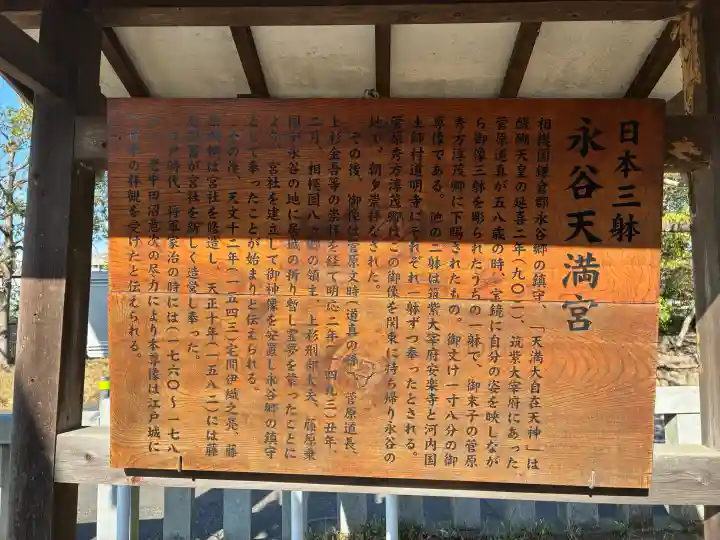 日本三躰
永谷天満宮
相模国鎌倉郡永谷郷の鎮守、「天満大自在天神」は
醍醐天皇の延喜二年(九〇二)、筑紫大宰府にあった
菅原道真が五八歳の時、宝鏡に自分の姿を映しなが
ら御像三躰を彫られたうちの一躰で、御末子の菅原
秀方淳茂卿に下賜されたもの。御丈け一寸八分の御
尊像である。他の二躰は筑紫大宰府安楽寺と河内国
土師村道明寺にそれぞれ一躰ずつ奉ったとされる。
菅原秀方淳茂卿はこの御像を関東に持ち帰り永谷の
地で、朝夕崇拝なされた。
その後、御像は菅原文時(道真の孫)、菅原道長、
上杉金吾等の崇拝を経て明応二年(一四九三)丑年、
二月、相模国八ヶ郷の領主、上杉刑部大夫、藤原乗
国が永谷の地に居城の折り暫し霊夢を蒙ったことに
より、宮社を建立して御神像を安置し永谷郷の鎮守
として奉ったことが始まりと伝えられる。
その後、天文十二年(一五四三)宅間伊織之亮、藤
は宮社を修造し、天正十年(一五八二)には藤
が宮社を新しく造営し奉った。
江戸時代、将軍家治の時には(一七六〇～一七八
老中田沼意次の尽力により本尊像は江戸城に
の拝観を受けたと伝えられる。